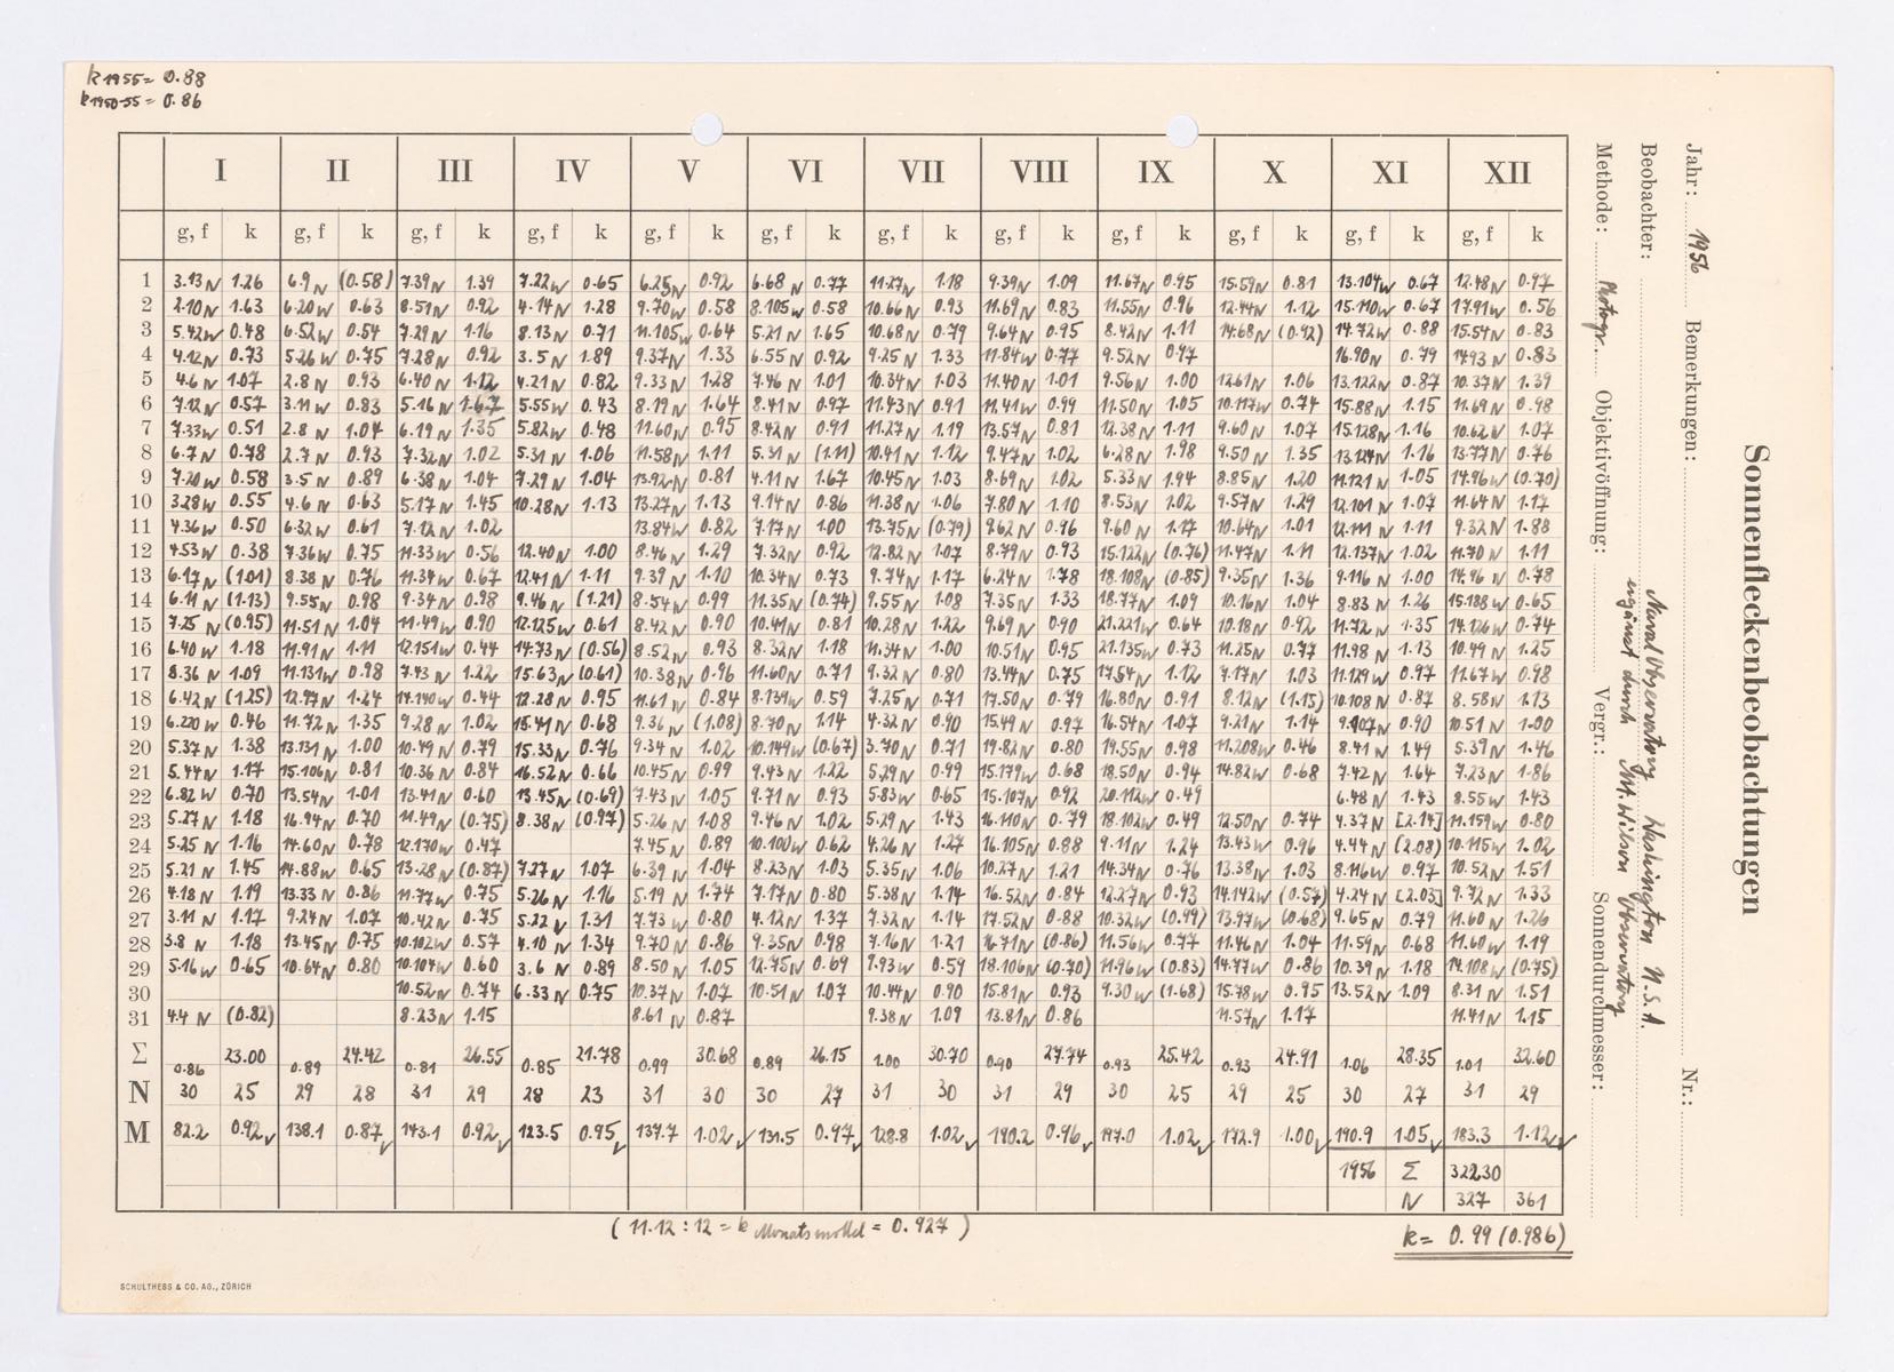 k 1955 = 0.88
k 1950-55 = 0.86
Sonnenfleckenbeobachtungen
Jahr: 1956 Bemerkungen: Nr.:
Beobachter: Naval Observatory Washington U.S.A.
ergänzt durch Mt. Wilson Observatory
Methode: Photogr. Objektivöffnung: Vergr.: Sonnendurchmesser:
I II III IV V VI VII VIII IX X XI XII
g, f k g, f k g, f k g, f k g, f k g, f k g, f k g, f k g, f k g, f k g, f k g, f k
1 3.13N 1.26 6.9N (0.58) 7.39N 1.39 7.22W 0.65 6.25N 0.92 6.68N 0.77 11.27N 1.18 9.39N 1.09 11.67N 0.95 15.59N 0.81 13.104W 0.67 12.48N 0.97
2 2.10N 1.63 6.20W 0.63 8.51N 0.92 4.14N 1.28 9.70W 0.58 8.105W 0.58 10.66N 0.93 11.69N 0.83 11.55N 0.96 12.44N 1.12 15.110W 0.67 17.91W 0.56
3 5.42W 0.48 6.52W 0.54 7.29N 1.16 8.13N 0.71 11.105W 0.64 5.21N 1.65 10.68N 0.79 9.64N 0.95 8.42N 1.11 14.68N (0.92) 14.72W 0.88 15.54N 0.83
4 4.12N 0.73 5.26W 0.75 7.28N 0.92 3.5N 1.89 9.37N 1.33 6.55N 0.92 9.25N 1.33 11.84W 0.77 9.52N 0.97 16.90N 0.79 14.93N 0.83
5 4.6N 1.07 2.8N 0.93 6.40N 1.12 4.21N 0.82 9.33N 1.28 7.46N 1.01 10.34N 1.03 11.40N 1.01 9.56N 1.00 12.61N 1.06 13.122N 0.87 10.37N 1.39
6 7.12N 0.57 3.11W 0.83 5.16N 1.67 5.55W 0.43 8.19N 1.64 8.41N 0.97 11.43N 0.91 11.41W 0.99 11.50N 1.05 10.117W 0.74 15.88N 1.15 11.69N 0.98
7 7.33W 0.51 2.8N 1.04 6.19N 1.35 5.82W 0.48 11.60N 0.95 8.42N 0.91 11.27N 1.19 13.57N 0.81 12.38N 1.11 9.60N 1.07 15.128N 1.16 10.62N 1.07
8 6.7N 0.78 2.7N 0.93 7.32N 1.02 5.31N 1.06 11.58N 1.11 5.31N (1.11) 10.41N 1.12 9.47N 1.02 6.28N 1.98 9.50N 1.35 13.124N 1.16 13.77N 0.76
9 7.20W 0.58 3.5N 0.89 6.38N 1.04 7.29N 1.04 13.92N 0.81 4.11N 1.67 10.45N 1.03 8.69N 1.02 5.33N 1.94 8.85N 1.20 11.121N 1.05 14.96W (0.70)
10 3.28W 0.55 4.6N 0.63 5.17N 1.45 10.28N 1.13 13.27N 1.13 9.14N 0.86 11.38N 1.06 7.80N 1.10 8.53N 1.02 9.57N 1.29 12.101N 1.07 11.64N 1.17
11 4.36W 0.50 6.32W 0.61 7.12N 1.02 13.84W 0.82 7.17N 1.00 13.75N (0.79) 9.62N 0.96 9.60N 1.17 10.64N 1.01 12.111N 1.11 9.32N 1.88
12 4.53W 0.38 7.36W 0.75 11.33W 0.56 12.40N 1.00 8.46N 1.29 7.32N 0.92 12.82N 1.07 8.79N 0.93 15.122N (0.76) 11.47N 1.11 12.137N 1.02 11.70N 1.11
13 6.17N (1.01) 8.38N 0.76 11.34W 0.67 12.41N 1.11 9.39N 1.10 10.34N 0.73 9.74N 1.17 6.24N 1.78 18.108N (0.85) 9.35N 1.36 9.116N 1.00 14.96N 0.78
14 6.11N (1.13) 9.55N 0.98 9.34N 0.98 9.46N (1.21) 8.54N 0.99 11.35N (0.74) 9.55N 1.08 7.35N 1.33 18.77N 1.09 10.16N 1.04 8.83N 1.26 15.188W 0.65
15 7.25N (0.95) 11.51N 1.04 11.49W 0.90 12.125W 0.61 8.42N 0.90 10.41N 0.81 10.28N 1.22 9.69N 0.90 21.221W 0.64 10.18N 0.92 11.72N 1.35 14.126W 0.74
16 6.40W 1.18 11.91N 1.11 12.151W 0.44 14.73N (0.56) 8.52N 0.93 8.32N 1.18 11.34N 1.00 10.51N 0.95 21.135W 0.73 11.25N 0.77 11.98N 1.13 10.49N 1.25
17 8.36N 1.09 11.131W 0.98 7.43N 1.22 15.63N (0.61) 10.38N 0.96 11.60N 0.71 9.32N 0.80 13.44N 0.75 17.54N 1.12 7.17N 1.03 11.129W 0.97 11.67W 0.98
18 6.42N (1.25) 12.97N 1.24 14.140W 0.44 12.28N 0.95 11.61N 0.84 8.139W 0.59 7.25N 0.71 17.50N 0.79 16.80N 0.91 8.12N (1.15) 10.108N 0.87 8.58N 1.13
19 6.220W 0.46 11.72N 1.35 9.28N 1.02 15.41N 0.68 9.36N (1.08) 8.70N 1.14 4.32N 0.90 15.49N 0.97 16.54N 1.07 9.21N 1.14 9.107N 0.90 10.51N 1.00
20 5.37N 1.38 13.131N 1.00 10.49N 0.79 15.33N 0.76 9.34N 1.02 10.149W (0.67) 3.70N 0.71 19.82N 0.80 19.55N 0.98 11.208W 0.46 8.41N 1.49 5.39N 1.46
21 5.44N 1.17 15.106N 0.81 10.36N 0.84 16.52N 0.66 10.45N 0.99 9.43N 1.22 5.29N 0.99 15.179W 0.68 18.50N 0.94 14.82W 0.68 7.42N 1.64 7.23N 1.86
22 6.82W 0.70 13.54N 1.01 13.41N 0.60 13.45N (0.69) 7.43N 1.05 9.71N 0.93 5.83W 0.65 15.107N 0.92 20.112W 0.49 6.48N 1.43 8.55W 1.43
23 5.27N 1.18 16.94N 0.70 11.49N (0.75) 8.38N (0.97) 5.26N 1.08 9.46N 1.02 5.29N 1.43 16.110N 0.79 18.102W 0.49 12.50N 0.74 4.37N [2.14] 11.159W 0.80
24 5.25N 1.16 14.60N 0.78 12.170W 0.47 7.45N 0.89 10.100W 0.62 4.26N 1.27 16.105N 0.88 9.11N 1.24 13.43W 0.96 4.44N (2.08) 10.115W 1.02
25 5.21N 1.45 14.88W 0.65 13.28N (0.87) 7.27N 1.07 6.39N 1.04 8.23N 1.03 5.35N 1.06 10.27N 1.21 14.34N 0.76 13.38N 1.03 8.116W 0.97 10.52N 1.51
26 4.18N 1.19 13.33N 0.86 11.77W 0.75 5.26N 1.16 5.19N 1.74 7.17N 0.80 5.38N 1.14 16.52N 0.84 12.27N 0.93 14.142W (0.57) 4.24N [2.03] 9.72N 1.33
27 3.11N 1.17 9.24N 1.07 10.42N 0.75 5.22N 1.31 7.73W 0.80 4.12N 1.37 7.32N 1.14 17.52N 0.88 10.32W (0.99) 13.97W (0.68) 9.65N 0.79 11.60N 1.26
28 3.8N 1.18 13.45N 0.75 10.102W 0.57 4.10N 1.34 9.70N 0.86 9.35N 0.98 7.16N 1.21 16.71N (0.86) 11.56W 0.77 11.46N 1.04 11.59N 0.68 11.60W 1.19
29 5.16W 0.65 10.64N 0.80 10.104W 0.60 3.6N 0.89 8.50N 1.05 12.75N 0.69 7.93W 0.59 18.106N (0.70) 11.96W (0.83) 14.77W 0.86 10.39N 1.18 14.108W (0.75)
30 10.52N 0.74 6.33N 0.75 10.37N 1.07 10.51N 1.07 10.44N 0.90 15.81N 0.93 9.30W (1.68) 15.78W 0.95 13.52N 1.09 8.31N 1.51
31 4.4N (0.82) 8.23N 1.15 8.61N 0.87 9.38N 1.09 13.81N 0.86 11.57N 1.17 11.41N 1.15
Σ 0.86 23.00 0.89 24.42 0.81 26.55 0.85 21.78 0.99 30.68 0.89 26.15 1.00 30.70 0.90 27.74 0.93 25.42 0.93 24.91 1.06 28.35 1.01 32.60
N 30 25 29 28 31 29 28 23 31 30 30 27 31 30 31 29 30 25 29 25 30 27 31 29
M 82.2 0.92 138.1 0.87 143.1 0.92 123.5 0.95 137.7 1.02 131.5 0.97 128.8 1.02 190.2 0.96 197.0 1.02 172.9 1.00 190.9 1.05 183.3 1.12
1956 Σ 322.30
N 327 361
(11.12 : 12 = k Monatsmittel = 0.927)
k = 0.99 (0.986)
SCHULTHESS & CO. AG., ZÜRICH